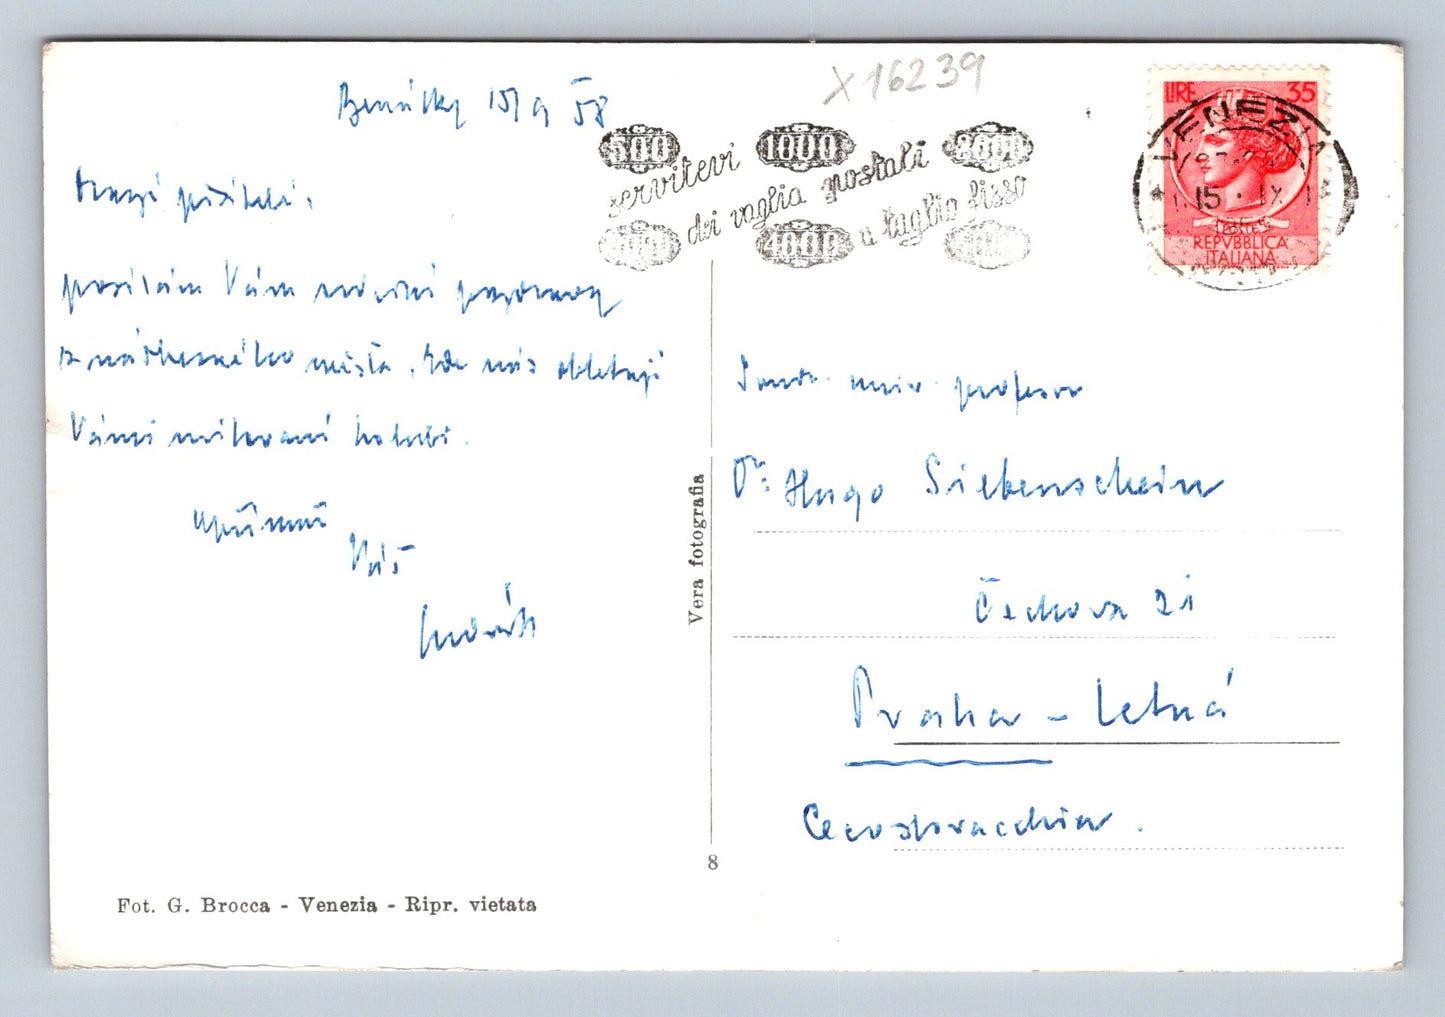 X16239
Benátky 15/9 58
500 1000 2000
servitevi
dei vaglia postali
a taglio fisso
3000 4000 5000
LIRE 35
VENEZIA
15 · IX
REPVBBLICA
ITALIANA
Drazí přátelé,
posílám Vám srdečné pozdravy
z nádherného města, kde nás obletují
Vámi milovaní holubi.
upřímně
Váš
Soudr. univ. profesor
Dr Hugo Siebenschein
Čechova 21
Praha - Letná
Cecoslovacchia.
Vera fotografia
8
Fot. G. Brocca - Venezia - Ripr. vietata